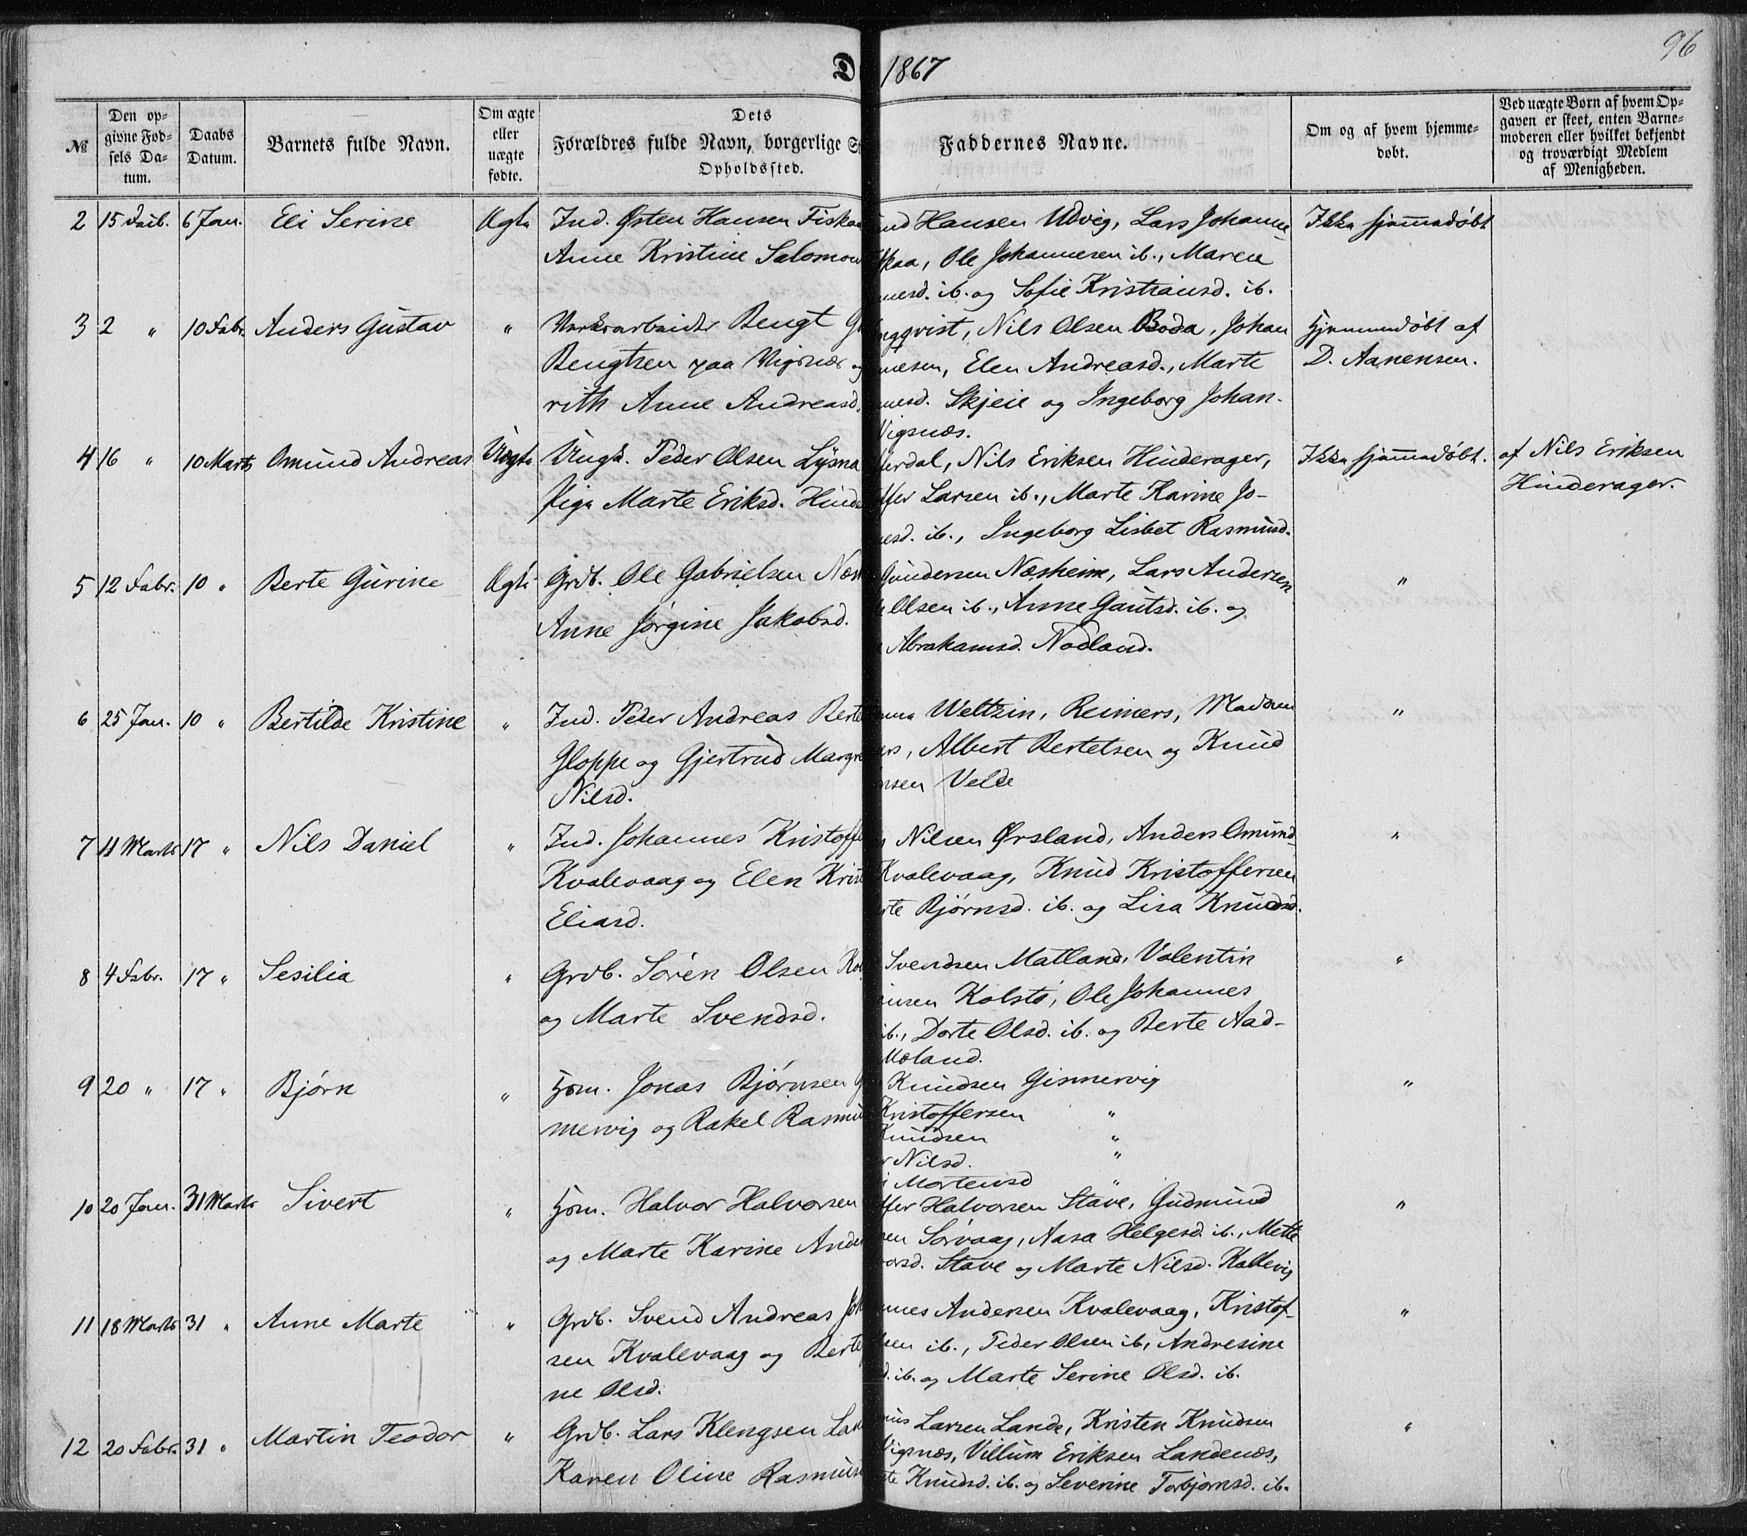 96
D 1867
№
Den op-
givne Fød-
sels Da-
tum.
Daabs
Datum.
Barnets fulde Navn.
Om ægte
eller
uægte
fødte.
Dets
Forældres fulde Navn, borgerlige S
Opholdssted.
Faddernes Navne.
Om og af hvem hjemme-
døbt.
Ved uægte Børn af hvem Op-
gaven er skeet, enten Barne-
moderen eller hvilket bekjendt
og troværdigt Medlem
af Menigheden.
2 15 Feb. 6 Jan. Eli Serine Ægte Ind. Østen Hansen Fiskaa
Anne Kristine Salomon
Hansen Udvig, Lars Johanne
skaa, Ole Johannesen ib., Maren
nesd. ib. og Sofie Kristiansd. ib.
Ikke hjemmedøbt
3 2 " 10 Febr. Anders Gustav " Værkarbeider Bengt G
Bengtsen paa Vigsnæs og
rith Anne Andreasd.
ngqvist, Nils Olsen Boda, Johan
nesen, Elen Andreasd., Marte
nesd. Skjeie og Ingeborg Johan-
Vigsnæs.
Hjemmedøbt af
D. Aanensen.
4 16 " 10 Marts Omund Andreas Uægte Ungk. Peder Olsen Lysna
Pige Marte Eriksd. Hinde
erdal, Nils Eriksen Hinderager,
ffer Larsen ib., Marte Karine Jo-
esd. ib., Ingeborg Lisbet Rasmusd.
Ikke hjemmedøbt.
af Nils Eriksen
Hinderager.
5 12 Febr. 10 " Berte Gurine Ægte Grdb. Ole Gabrielsen Næs
Anne Jørgine Jakobsd.
Gundersen Næsheim, Lars Andersen
Olsen ib., Anne Gautsd. ib. og
Abrahamsd. Nodland.
"
6 25 Jan. 10 " Bertilde Kristine " Ind. Peder Andreas Berte
Gloppe og Gjertrud Margre
Nilsd.
Weltzin, Reimers, Madam
rs, Albert Bertelsen og Knud
nsen Velde
"
7 11 Marts 17 " Nils Daniel " Ind. Johannes Kristoffe
Kvalevaag og Elen Krist
Eliasd.
Nilsen Ørsland, Anders Omund
Kvalevaag, Knud Kristoffersen
rte Bjørnsd. ib. og Lisa Knudsd.
"
8 4 Febr. 17 " Sesilia " Grdb. Sørén Olsen Kol
og Marte Svendsd.
Svendsen Matland, Valentin
nsen Kolstø, Ole Johannes
ib., Dorte Olsd. ib. og Berte Aad-
Moland.
"
9 20 " 17 " Bjørn " Hsm. Jonas Bjørnsen G
mervig og Rakel Rasmu
Knudsen Gismervig
Kristoffersen "
Knudsen "
r Nilsd. "
Mortensd "
"
10 20 Jan. 31 Marts Sivert " Hsm. Halvor Halvorsen
og Marte Karine Ande
ffer Halvorsen Stave, Gudmund
en Sørvaag, Aasa Helgesd. ib., Mette
orsd. Stave og Marte Nilsd. Hallevig
"
11 18 Marts 31 " Anne Marte " Grdb. Svend Andreas Joh
sen Kvalevaag og Berte
ne Olsd.
nnes Andersen Kvalevaag, Kristof-
sen ib., Peder Olsen ib., Andresine
d. ib. og Marte Serine Olsd. ib.
"
12 20 Febr. 31 " Martin Teodor " Grdb. Lars Klengsen Lan
Karen Oline Rasmus
us Larsen Lande, Kristen Knudsen
Vigsnæs, Villum Eriksen Landenæs,
te Knudsd. ib. og Severine Torbjørnsd. ib.
"